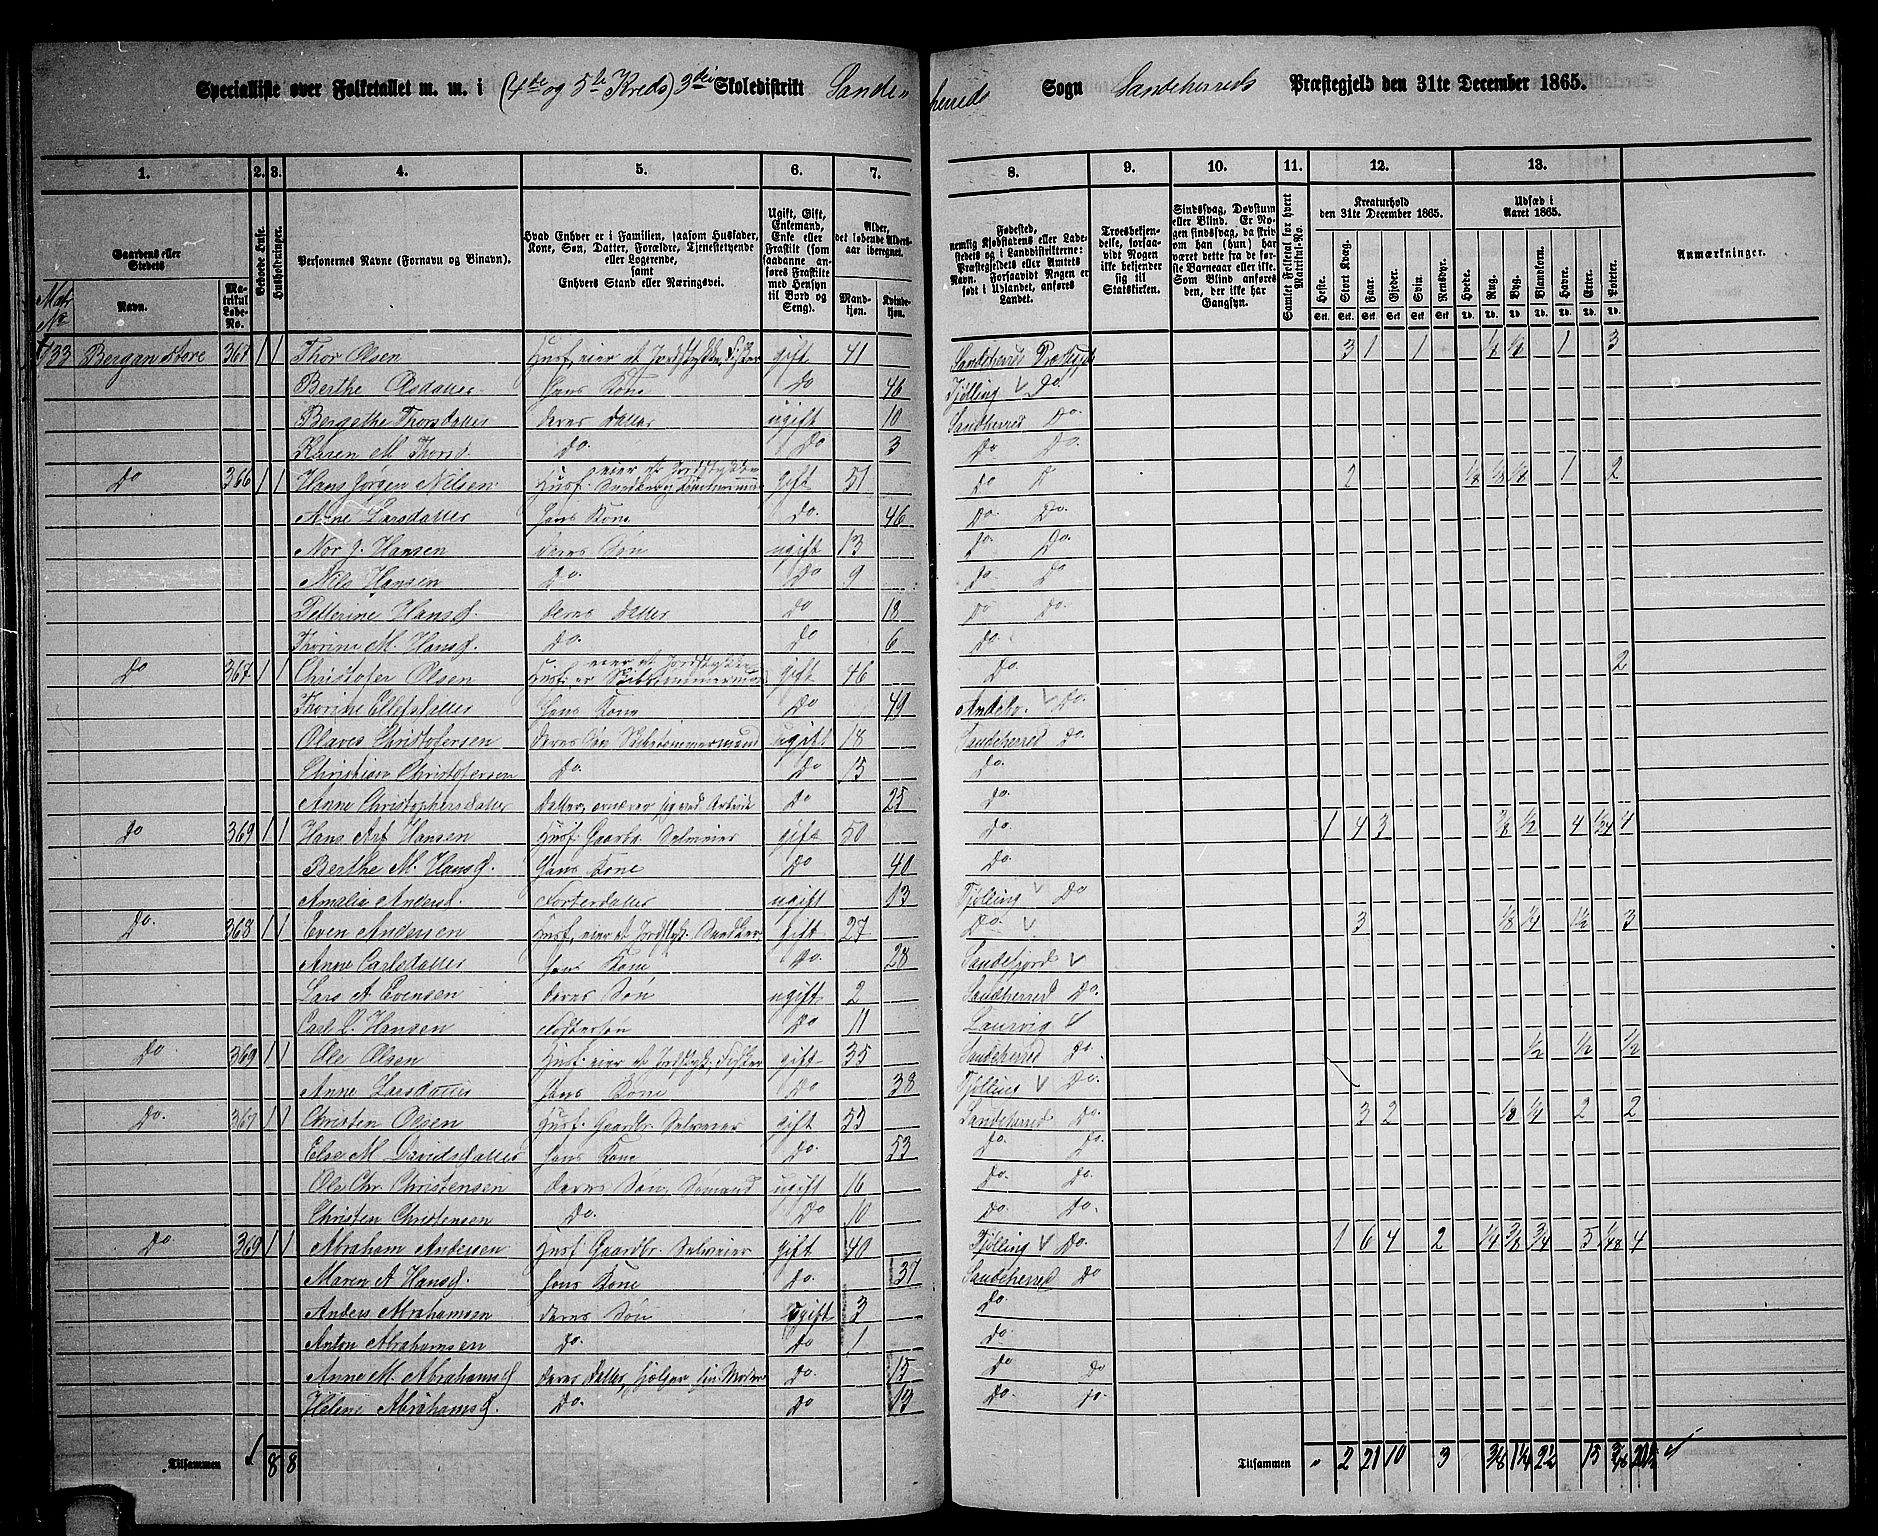 Specialliste over Folketallet m. m. i (4de og 5te Kreds) 3die Skoledistrikt Sandeherreds Sogn Sandeherreds Præstegjeld den 31te December 1865.
1. 2. 3. 4. 5. 6. 7. 8. 9. 10. 11. 12. 13.
Gaardens eller Stedets
Navn.
Matrikul Løbe-No.
Beboede Huse.
Husholdninger.
Personernes Navne (Fornavn og Binavn).
Hvad Enhver er i Familien, saasom Husfader, Kone, Søn, Datter, Forældre, Tjenestetyende eller Logerende, samt Enhvers Stand eller Næringsvei.
Ugift, Gift, Enkemand, Enke eller Fraskilt (som saadanne anføres Fraskilte med Hensyn til Bord og Seng).
Alder, det løbende Alders-aar iberegnet.
Mand-kjøn.
Kvinde-kjøn.
Fødested, nemlig Kjøbstadens eller Ladestedets og i Landdistrikterne: Præstegjeldets eller Amtets Navn. Forsaavidt Nogen er født i Udlandet, anføres Landet.
Troesbekjendelse, forsaavidt Nogen ikke bekjender sig til Statskirken.
Sindssvag, Døvstum eller Blind. Er Nogen sindssvag, da skrives om han (hun) har været dette fra de første Barneaar eller ikke. Som Blind anføres den, der ikke har Gangsyn.
Samlet Folketal for hvert Matrikul-No.
Kreaturhold den 31te December 1865.
Heste. Stort Kvæg. Faar. Gjeder. Svin. Rensdyr.
Udsæd i Aaret 1865.
Hvede. Rug. Byg. Blandkorn. Havre. Erter. Poteter.
Anmærkninger.
33 Bergan store 367 1 1 Thor Olsen Husf, eier et Jordstykke, Fisker gift 41 Sandeherreds Præstegjd 3 1 1 1 3
Berthe Olsdatter hans Kone Do 46 Tjølling V Do
Bergethe Thorsdatter deres Datter ugift 10 Sandeherred Do
Karen M. Thorsd. Do. Do 3 Do Do.
Do 366 1 1 Hans Jørgen Nilsen Husf. eier et Jordstykke gift 51 Do 2 1/8 1/8 1 2
Anne Larsdatter hans Kone Do. 46 Do. Do.
Nor J. Hansen deres Søn ugift 13 Do.
Nils Hansen Do. Do 9 Do. Do
Petterine Hansd. deres Datter Do 18 Do Do.
Thorine M. Hansd. Do. Do 6 Do.
Do 367 1 1 Christofer Olsen Husf. eier et Jordstykke er Skibstømmermand gift 46 Do. 2
Thorine Ellefsdatter hans Kone Do 49 Andebo V Do.
Olaves Christofersen deres Søn Skibstømmermand ugift 18 Sandeherred Do
Christian Christofersen Do. Do 15 Do.
Anne Christophersdatter Datter, ernærer sig ved Arbeide Do 25 Do.
Do 369 1 1 Hans Hansen Husf: Gaardb. Selveier gift 50 Do. 1 4 3 1/2 4 1/24 4
Berthe M. Hansd. hans Kone Do 40 Do.
Amalia Andersd. Fosterdatter ugift 13 Tjølling V Do
Do. 368 1 1 Even Andersen Husf, eier et Jordstyk. gift 27 Do. V 3 1/8 1/4 1 1/2 3
Anne Carlsdatter hans Kone Do. 28 Sandefjord V
Lars A. Evensen deres Søn ugift 2 Sandeherred Do.
Carl L. Hansen Fostersøn Do 11 Laurvig V
Do. 369 1 1 Ole Olsen Husf: eier et Jordstyk, Fisker gift 35 Sandeherred Do. 1/2 1/2 1/2
Anne Larsdatter hans Kone Do 38 Tjølling V Do.
Do. 367 1 1 Christen Olsen Husf: Gaardbr. Selveier gift 55 Sandeherred Do. 3 2 1/8 1/4 2 2
Else M. Davidsdatter hans Kone Do. 53 Do. Do.
Ole Chr. Christensen deres Søn, Sømand ugift 16 Do. Do.
Christen Christensen Do. Do 10 Do. Do.
Do 369 1 1 Abraham Andersen Husf Gaardbr. Selveier gift 40 Tjølling V Do. 1 6 4 2 1/4 3/8 3/4 5 1/48 4
Maren A. Hansd hans Kone Do. 37 Sandeherred Do
Anders Abrahamsen deres Søn ugift 3 Do.
Anton Abrahamsen Do. Do 1 Do.
Anne M. Abrahamsd deres Datter, hjælper sin Moder Do. 15 Do Do
Helene Abrahamsd. Do. Do 13 Do. Do.
Tilsammen 8 8 Tilsammen " 2 21 10 3 15